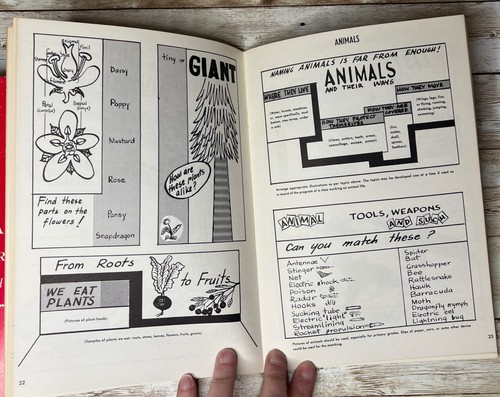 Stigma
Pistil
Petal
(Corolla)
Sepal
(Calyx)
Daisy
Poppy
Mustard
Rose
Pansy
Snapdragon
Find these
parts on the
flowers!
tiny or GIANT
How are
these plants
alike?
From Roots
to Fruits
WE EAT
PLANTS
(Pictures of plant foods)
(Samples of plants we eat: roots, stems, leaves, flowers, fruits, grains)
22
ANIMALS
NAMING ANIMALS IS FAR FROM ENOUGH!
ANIMALS
AND THEIR WAYS
WHERE THEY LIVE
HOW THEY MOVE
HOW THEY ARE
COVERED
HOW THEY PROTECT
THEMSELVES
(Claws, antlers, teeth, armor,
camouflage, escape, poison)
(Fur,
scales,
shell,
spines,
feathers)
Arrange appropriate illustrations as per topics above. The topics may be developed one at a time if used as
a record of the progress of a class working on animal life.
ANIMAL TOOLS, WEAPONS
AND SUCH
Can you match these?
Antennae
Stinger
Net
Electric shock
Poison
Radar
Hooks
Sucking tube
Electric light
Streamlining
Rocket propulsion
Spider
Bat
Grasshopper
Bee
Rattlesnake
Hawk
Barracuda
Moth
Dragonfly nymph
Electric eel
Lightning bug
Pictures of animals should be used, especially for primary grades. Slips of paper, yarn, or some other device
could be used for the matching.
23